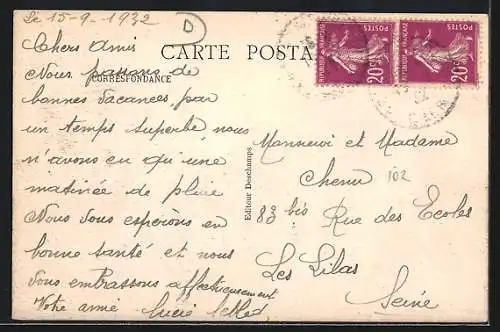 Le 15-9-1932
D
CARTE POSTA
CORRESPONDANCE
Chers Amis
Nous passons de
bonnes vacances par
un temps superbe nous
n'avons eu qu'une
matinée de pluie
Nous vous espérons en
bonne santé et nous
vous embrassons affectueusement
Votre amie Lucie
Editeur Deschamps
POSTES
20c
REPUBLIQUE FRANCAISE
POSTES
20c
REPUBLIQUE FRANCAISE
Monsieur et Madame
Chenu 102
83 bis Rue des Ecoles
Les Lilas
Seine